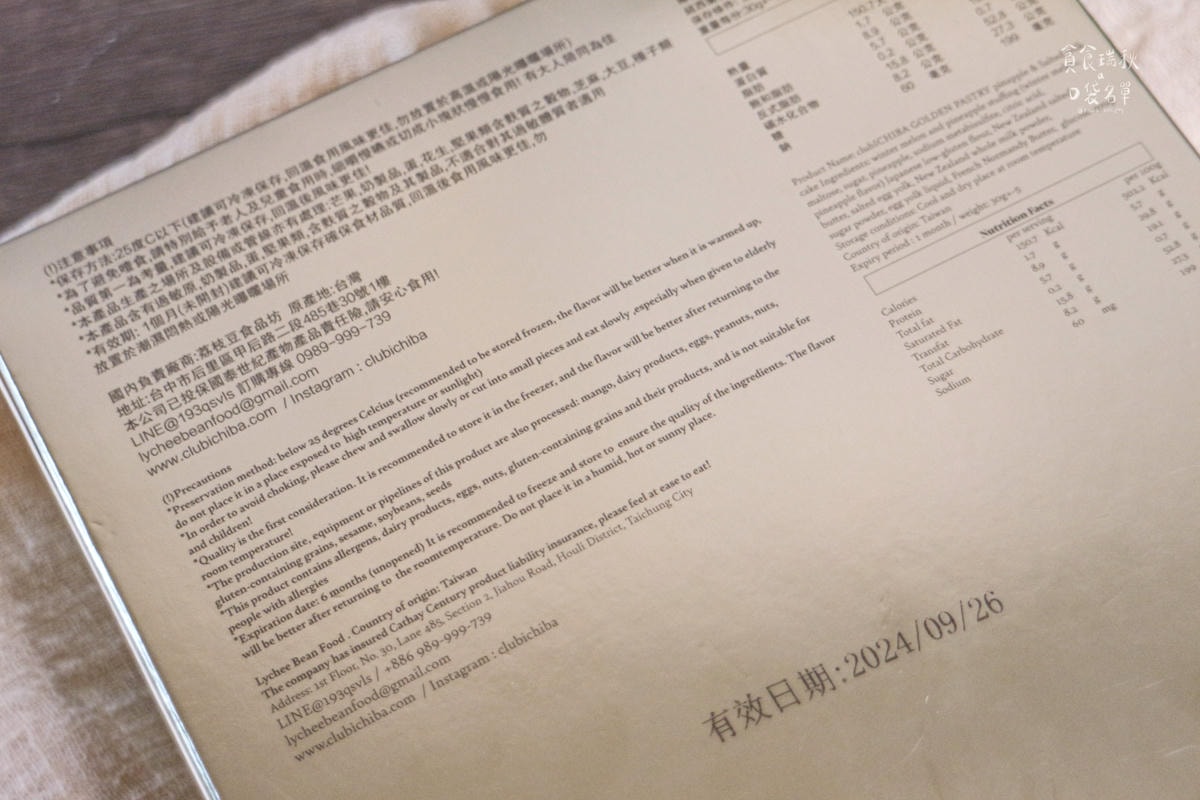 (!)注意事項
*保存方法:25度C以下(建議可冷凍保存,回溫食用風味更佳,勿放置於高溫或陽光曝曬場所)
*為了避免噎食,請特別給予老人及兒童食用時,細嚼慢嚥或切成小塊狀慢慢食用! 有大人陪同為佳
*品質第一為考量,建議可冷凍保存,回溫後風味更佳!
*本產品生產之場所及設備或管線亦有處理:芒果,奶製品,蛋,花生,堅果類含麩質之穀物,芝麻,大豆,種子類
*本產品含有過敏原,奶製品,蛋,堅果類,含麩質之穀物及其製品,不適合對其過敏體質者適用
*有效期: 1個月(未開封)建議可冷凍保存確保食材品質,回溫後食用風味更佳,勿
放置於潮濕悶熱或陽光曝曬場所
國內負責廠商:荔枝豆食品坊 原產地:台灣
地址:台中市后里區甲后路二段485巷30號1樓
本公司已投保國泰世紀產物產品責任險,請安心食用!
LINE@193qsvls 訂購專線 0989-999-739
lycheebeanfood@gmail.com
www.clubichiba.com / Instagram : clubichiba
(!)Precautions
*Preservation method: below 25 degrees Celcius (recommended to be stored frozen, the flavor will be better when it is warmed up,
do not place it in a place exposed to high temperature or sunlight)
*In order to avoid choking, please chew and swallow slowly or cut into small pieces and eat slowly ,especially when given to elderly
and children!
*Quality is the first consideration. It is recommended to store it in the freezer, and the flavor will be better after returning to the
room temperature!
*The production site, equipment or pipelines of this product are also processed: mango, dairy products, eggs, peanuts, nuts,
gluten-containing grains, sesame, soybeans, seeds
*This product contains allergens, dairy products, eggs, nuts, gluten-containing grains and their products, and is not suitable for
people with allergies
*Expiration date: 6 months (unopened) It is recommended to freeze and store to ensure the quality of the ingredients. The flavor
will be better after returning to the roomtemperature. Do not place it in a humid, hot or sunny place.
Lychee Bean Food . Country of origin: Taiwan
The company has insured Cathay Century product liability insurance, please feel at ease to eat!
Address: 1st Floor, No. 30, Lane 485, Section 2, Jiahou Road, Houli District, Taichung City
LINE@193qsvls / +886 989-999-739
lycheebeanfood@gmail.com
www.clubichiba.com / Instagram : clubichiba
保存條件:
重量每份:30g
熱量 150.7
蛋白質 1.7 公克
脂肪 8.9 公克
飽和脂肪 5.7 公克 0.7 公克
反式脂肪 0.2 公克 52.8 公克
碳水化合物 15.8 公克 27.3 公克
糖 8.2 公克 199 毫克
鈉 60 毫克
Product Name: clubICHIBA GOLDEN PASTRY pineapple &
cake Ingredients: winter melon and pineapple stuffing (winter
maltose, sugar, pineapple, sodium metabisulfite, citric acid,
pineapple flavor) Japanese low-gluten flour, New Zealand
butter, salted egg yolk, New Zealand whole milk powder,
sugar powder, egg yolk liquid, French Normandy butter, glucose
Storage conditions: Cool and dry place at room temperature
Country of origin: Taiwan
Expiry period : 1 month / weight: 30g±5
Nutrition Facts
per serving per 100g
Calories 150.7 Kcal 502.2 Kcal
Protein 1.7 g 5.7 g
Total fat 8.9 g 29.8 g
Saturated Fat 5.7 g 19.1 g
Transfat 0.2 g 0.7 g
Total Carbohydrate 15.8 g 52.8 g
Sugar 8.2 g 27.3
Sodium 60 mg 199
有效日期:2024/09/26
貪食瑞秋
a
口袋名單